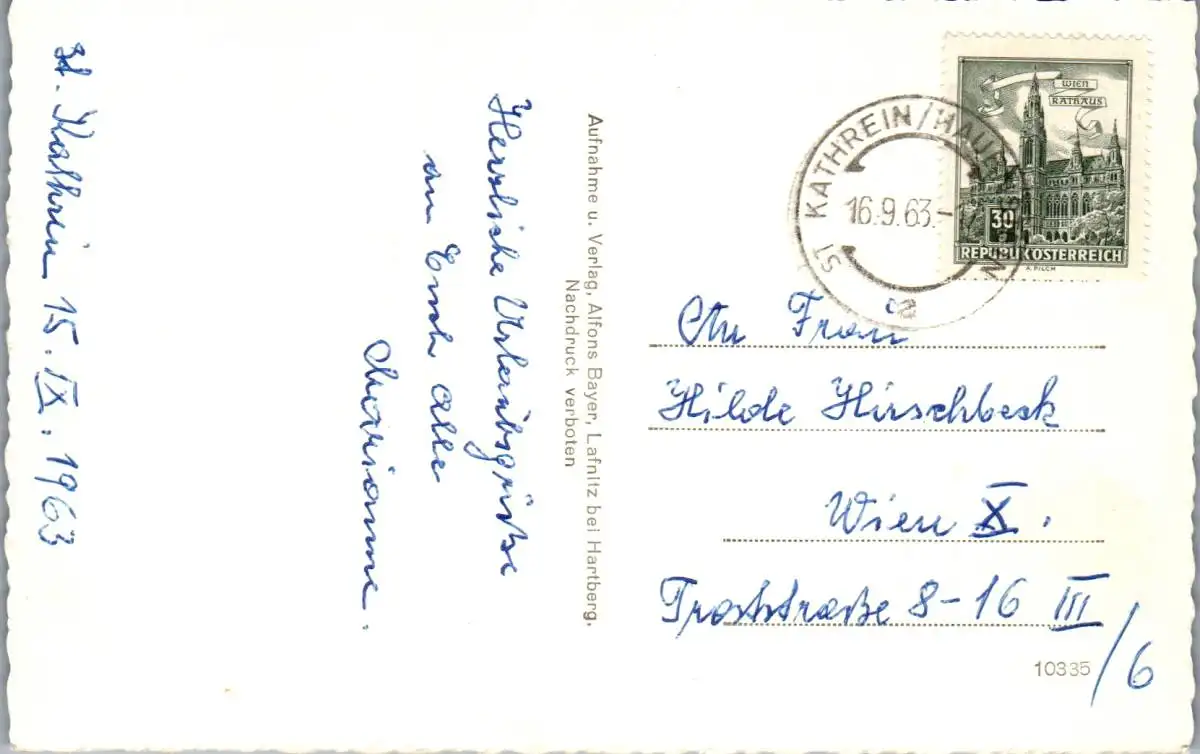 St. Kathrein 15. IX. 1963
Herzliche Urlaubsgrüße
an Euch alle
Marianne.
Aufnahme u. Verlag, Alfons Bayer, Lafnitz bei Hartberg.
Nachdruck verboten
WIEN
RATHAUS
30
REPUBLIK ÖSTERREICH
A. PILCH
ST KATHREIN/HAUENSTEIN
16.9.63.-
a
An Frau
Hilde Hirschbeck
Wien X.
Troststraße 8-16 III/6
10335